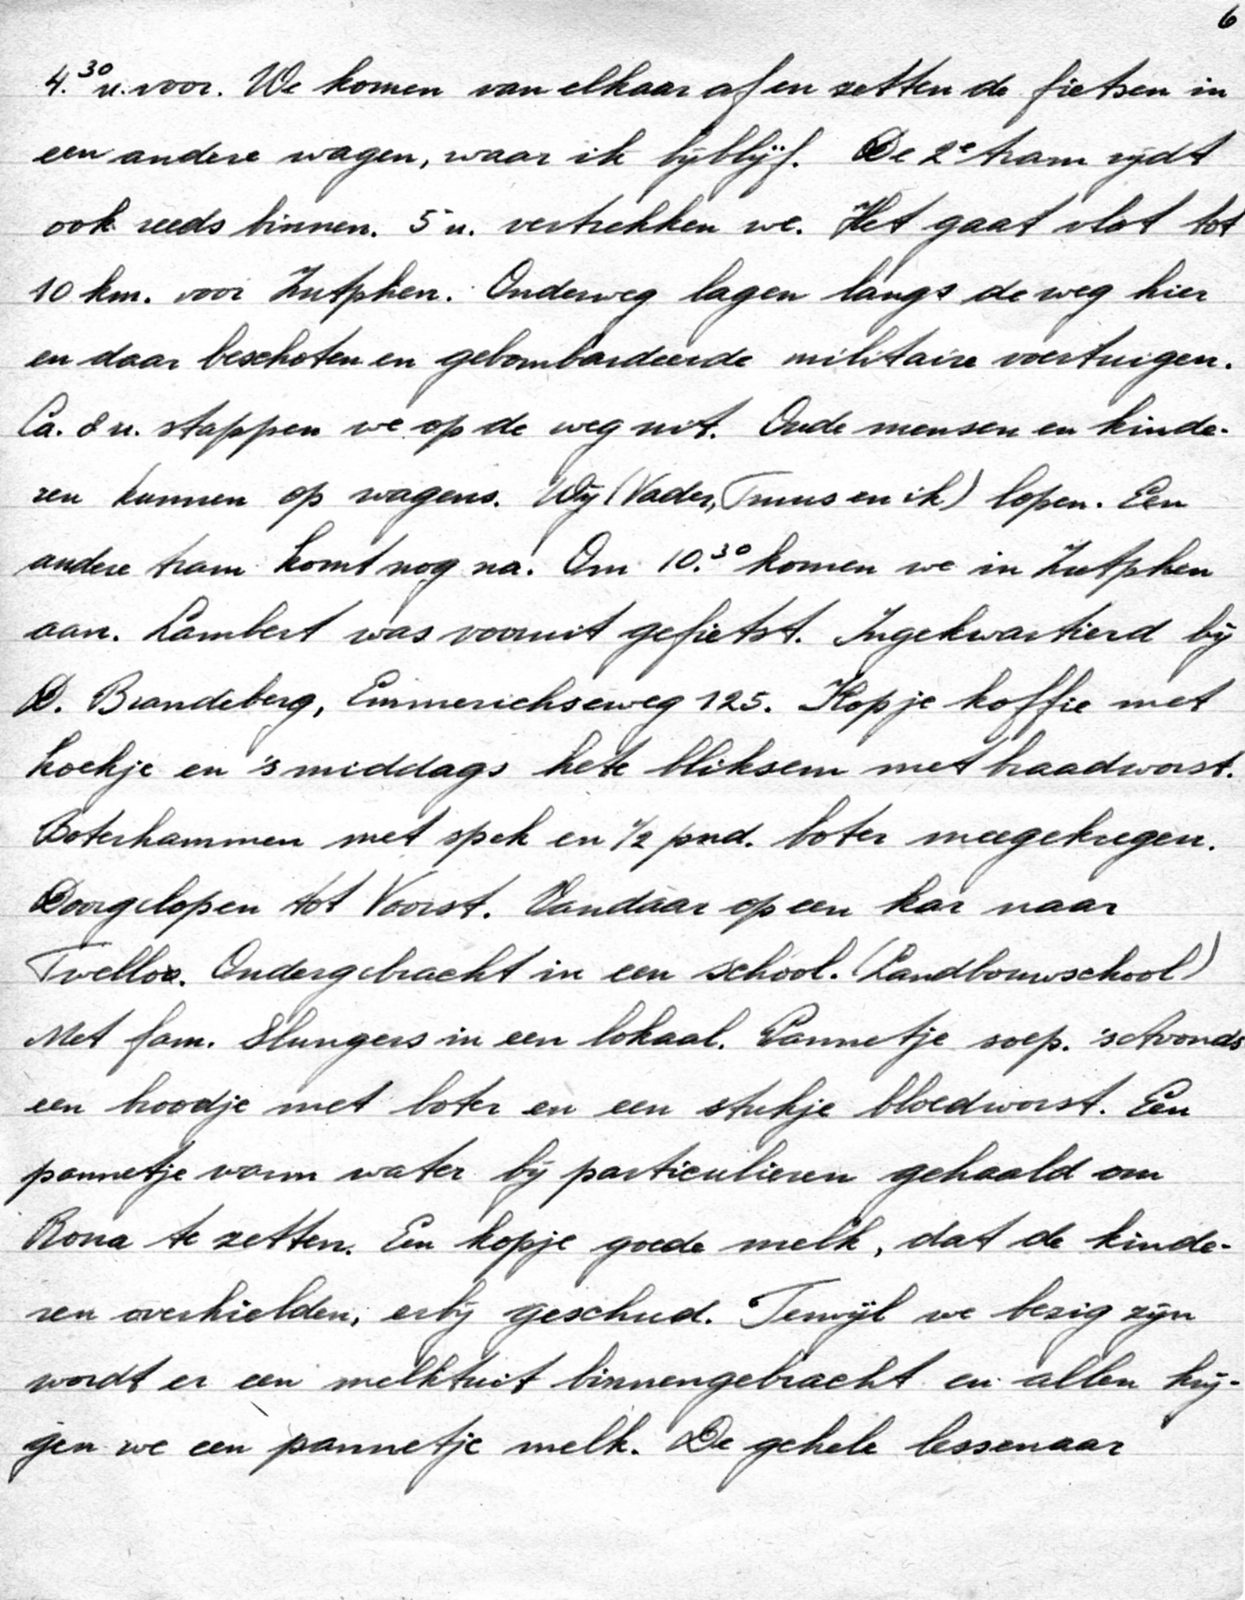 6
4.30 u. voor. We komen van elkaar af en zetten de fietsen in
een andere wagen, waar ik bijblijf. De 2e tram rijdt
ook reeds binnen. 5 u. vertrekken we. Het gaat vlot tot
10 km. voor Zutphen. Onderweg lagen langs de weg hier
en daar beschoten en gebombardeerde militaire voertuigen.
Ca. 8 u. stappen we op de weg uit. Oude mensen en kinde-
ren kunnen op wagens. Wij (Vader, Truus en ik) lopen. Een
andere tram komt nog na. Om 10.30 komen we in Zutphen
aan. Lambert was vooruit gefietst. Ingekwartierd bij
D. Brandeberg, Emmerichseweg 125. Kopje koffie met
koekje en 's middags hete bliksem met braadworst.
Boterhammen met spek en 1/2 pnd. boter meegekregen.
Doorgelopen tot Voorst. Vandaar op een kar naar
Twelloo. Ondergebracht in een school. (Landbouwschool)
Met fam. Slungers in een lokaal. Pannetje soep. 's Avonds
een broodje met boter en een stukje bloedworst. Een
pannetje warm water bij particulieren gehaald om
Rona te zetten. Een kopje goede melk, dat de kinde-
ren overhielden, erbij geschud. Terwijl we bezig zijn
wordt er een melktuit binnengebracht en allen krij-
gen we een pannetje melk. De gehele lessenaar